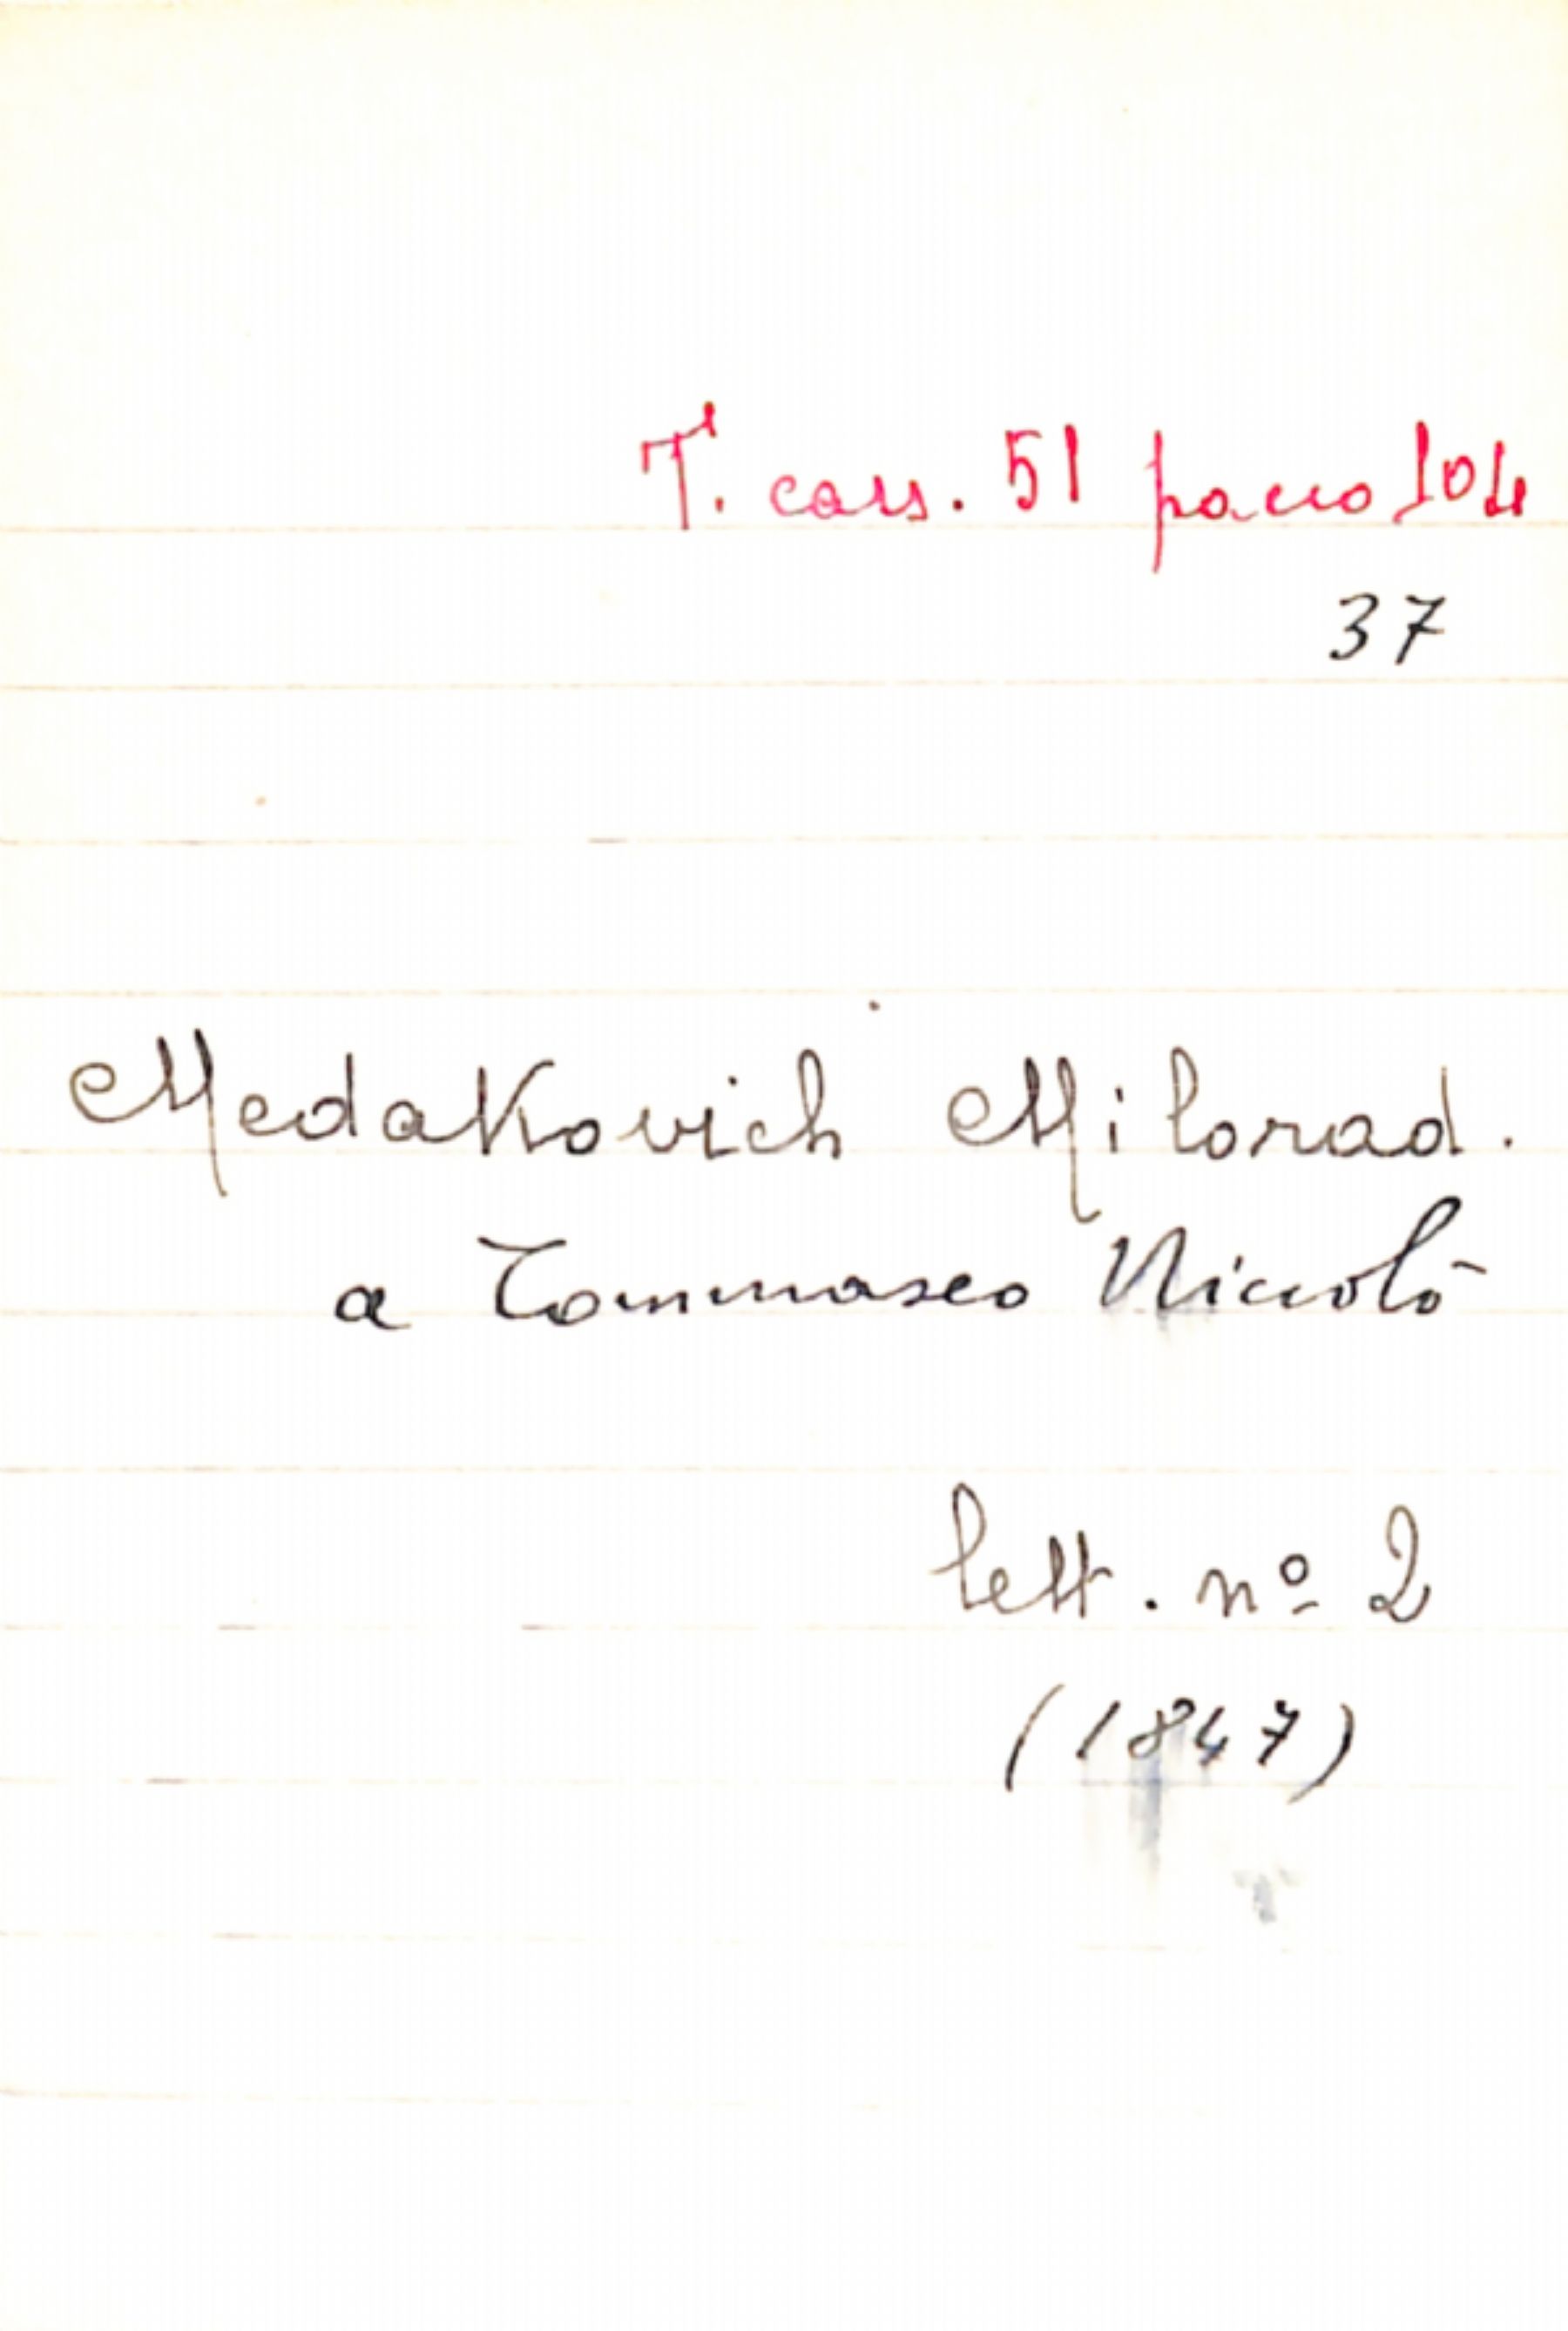 T. cass. 51 pacco 104
37
Medakovich Milorad.
a Tommaseo Niccolò
lett. nº 2
(1847)